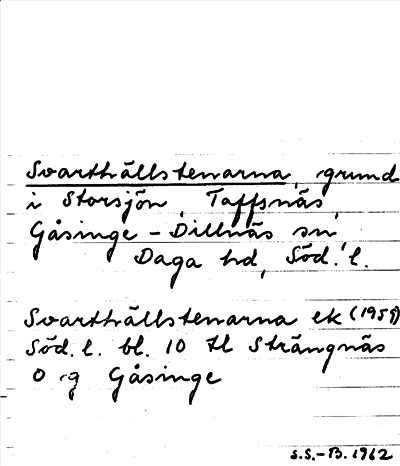 Svarthällstenarna, grund
i Storsjön, Taffsnäs,
Gåsinge-Dillnäs sn,
Daga hd, Söd. l.
Svarthällstenarna ek (1959)
Söd. l. bl. 10 tl Strängnäs
O g Gåsinge
S.S.-B. 1962